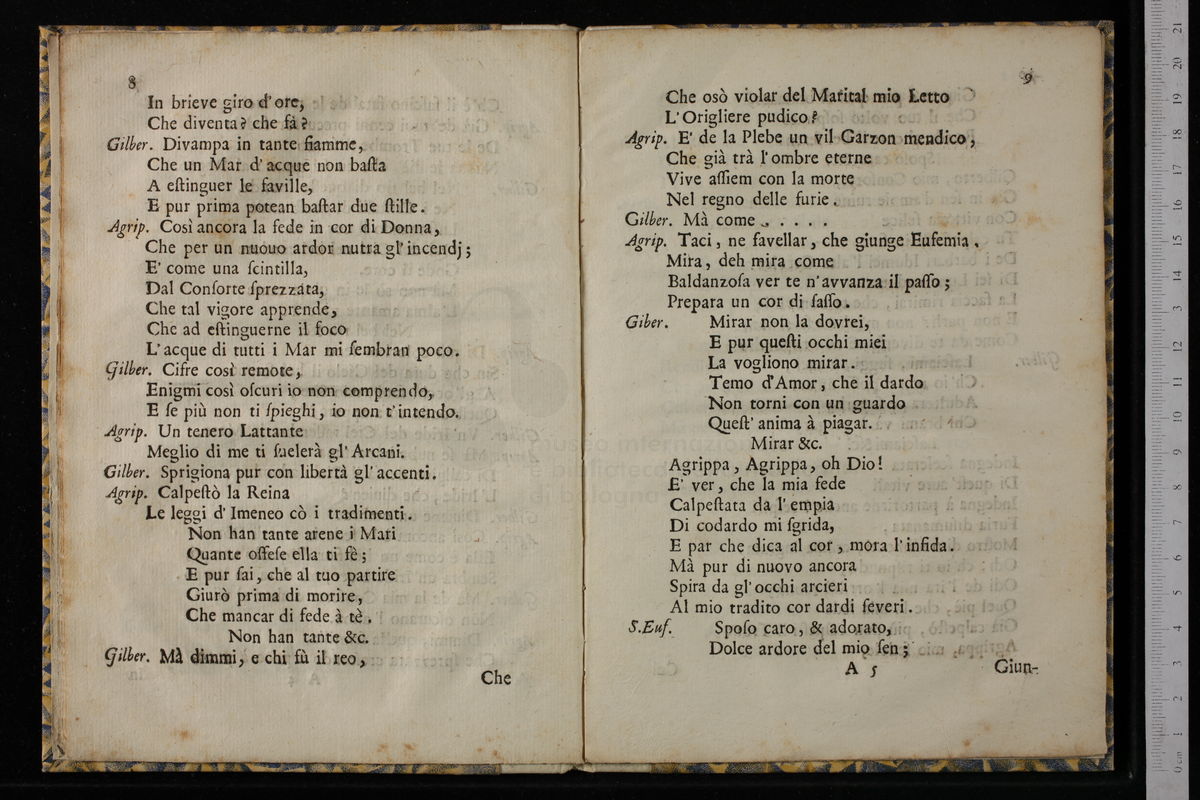 8
In brieve giro d'ore,
Che diventa? che fà?
Gilber. Divampa in tante fiamme,
Che un Mar d'acque non baſta
A eſtinguer le faville,
E pur prima potean baſtar due ſtille.
Agrip. Così ancora la fede in cor di Donna,
Che per un nuouo ardor nutra gl'incendj;
E' come una ſcintilla,
Dal Conſorte ſprezzata,
Che tal vigore apprende,
Che ad eſtinguerne il foco
L'acque di tutti i Mar mi ſembran poco.
Gilber. Cifre così remote,
Enigmi così oſcuri io non comprendo,
E ſe più non ti ſpieghi, io non t'intendo.
Agrip. Un tenero Lattante
Meglio di me ti ſuelerà gl'Arcani.
Gilber. Sprigiona pur con libertà gl'accenti.
Agrip. Calpeſtò la Reina
Le leggi d'Imeneo cò i tradimenti.
Non han tante arene i Mari
Quante offeſe ella ti fè;
E pur ſai, che al tuo partire
Giurò prima di morire,
Che mancar di fede à tè.
Non han tante &c.
Gilber. Mà dimmi, e chi fù il reo,
Che
9
Che osò violar del Marital mio Letto
L'Origliere pudico?
Agrip. E' de la Plebe un vil Garzon mendico,
Che già trà l'ombre eterne
Vive aſſiem con la morte
Nel regno delle furie.
Gilber. Mà come . . . . .
Agrip. Taci, ne favellar, che giunge Eufemia.
Mira, deh mira come
Baldanzoſa ver te n'avvanza il paſſo;
Prepara un cor di ſaſſo.
Giber. Mirar non la dovrei,
E pur queſti occhi miei
La vogliono mirar.
Temo d'Amor, che il dardo
Non torni con un guardo
Queſt'anima à piagar.
Mirar &c.
Agrippa, Agrippa, oh Dio!
E' ver, che la mia fede
Calpeſtata da l'empia
Di codardo mi ſgrida,
E par che dica al cor, mora l'infida.
Mà pur di nuovo ancora
Spira da gl'occhi arcieri
Al mio tradito cor dardi ſeveri.
S.Euf. Spoſo caro, & adorato,
Dolce ardore del mio ſen;
A 5 Giun-